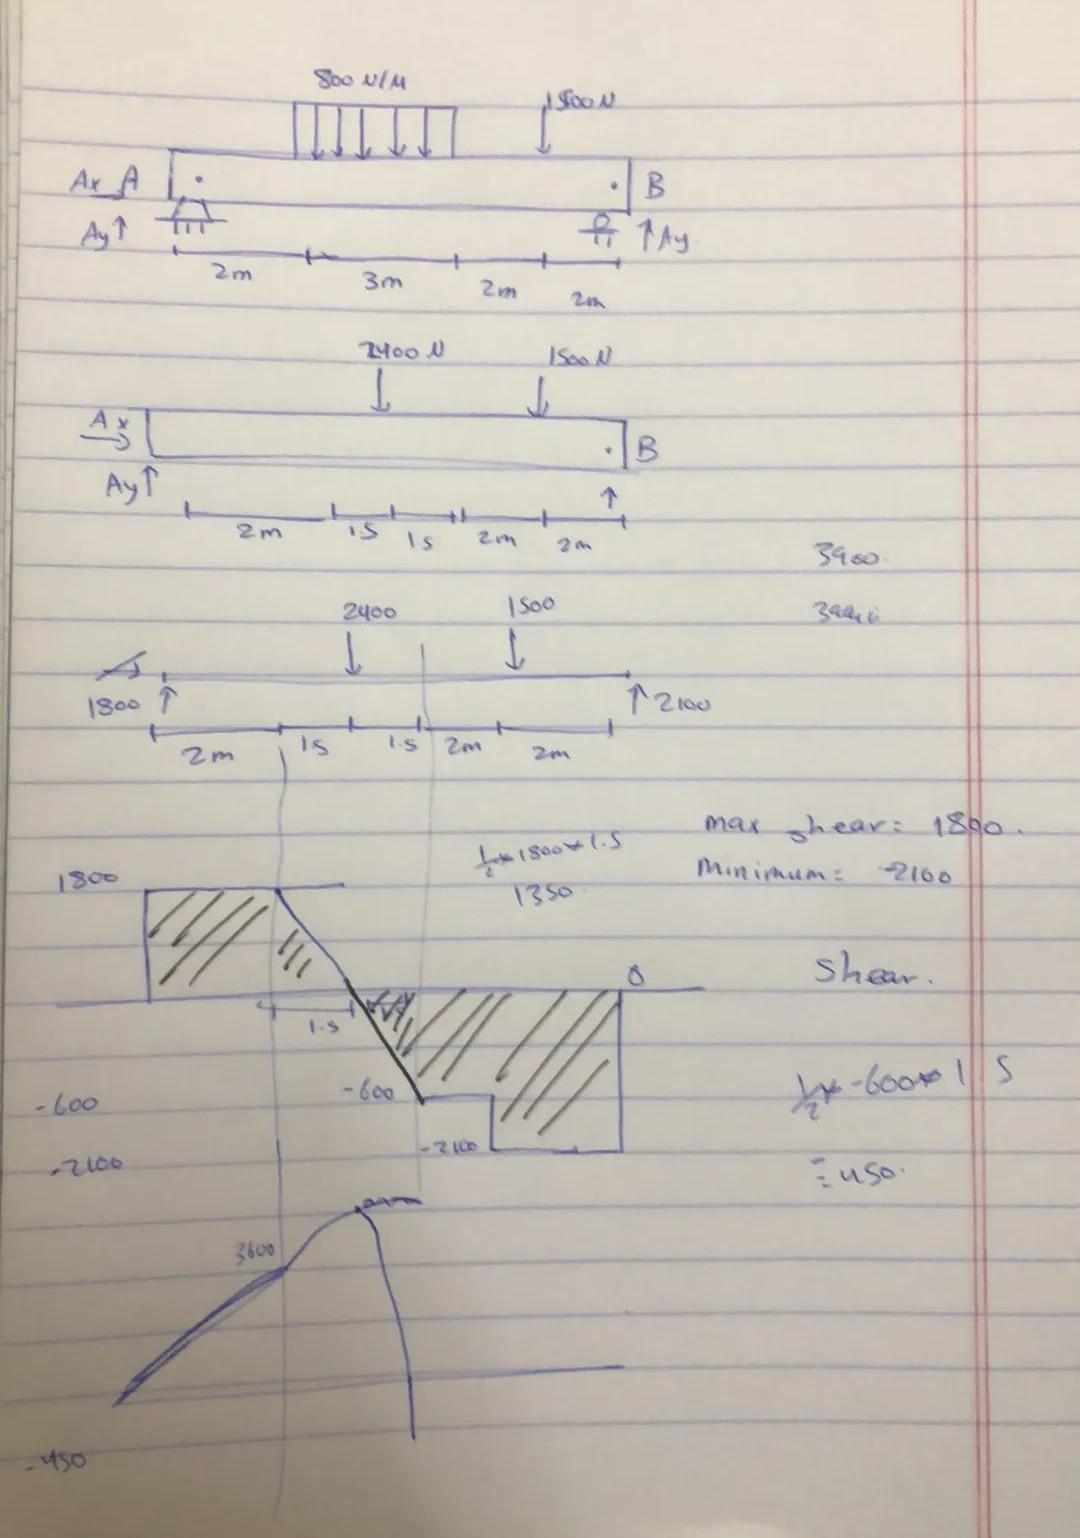 800 N/M
1500 N
Ax A
B
Ay↑
↑Ay
2m
3m
2m
2m
2400 N
1500 N
Ax
B
Ay↑
2m
1.5
1.5
2m
2m
3900
2400
1500
1800
2100
2m
1.5
1.5
2m
2m
max shear: 1800.
½*1800*1.5
Minimum: -2100
1800
1350
0
Shear.
1.5
½*-600*1.5
-600
-600
-2100
-2100
= 450.
3600
-450